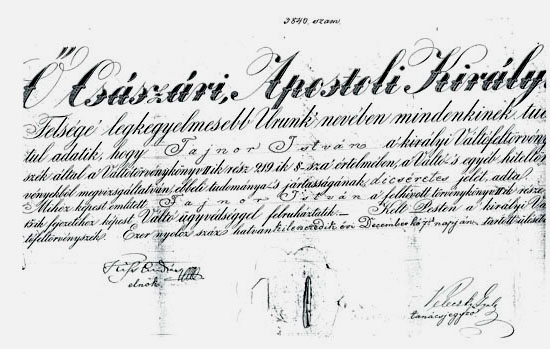 3840. szam.
Ő Császári, Apostoli Király
Felsége legkegyelmesebb Urunk nevében mindenkinek tud
tul adatik, hogy Tajnor István a királyi Váltófeltörvény
szék által a Váltótörvénykönyv II ik rész 219 ik §-sza értelmében, a Váltó 's egyéb hiteltör
vényekből megvizsgáltatván, ebbeli tudománya 's jártasságának dicséretes jelét adta
Mihez képest említett Tajnor István a felhívott törvénykönyv II ik része
15 ik fejezéhez képest Váltó ügyvédséggel felruháztatik. – Kelt Pesten a királyi Vál
tófeltörvényszék. Ezer nyolcz száz hatvankilenczedik évi December hó 7 napján tartott ülésé
elnök
tanácsjegyző